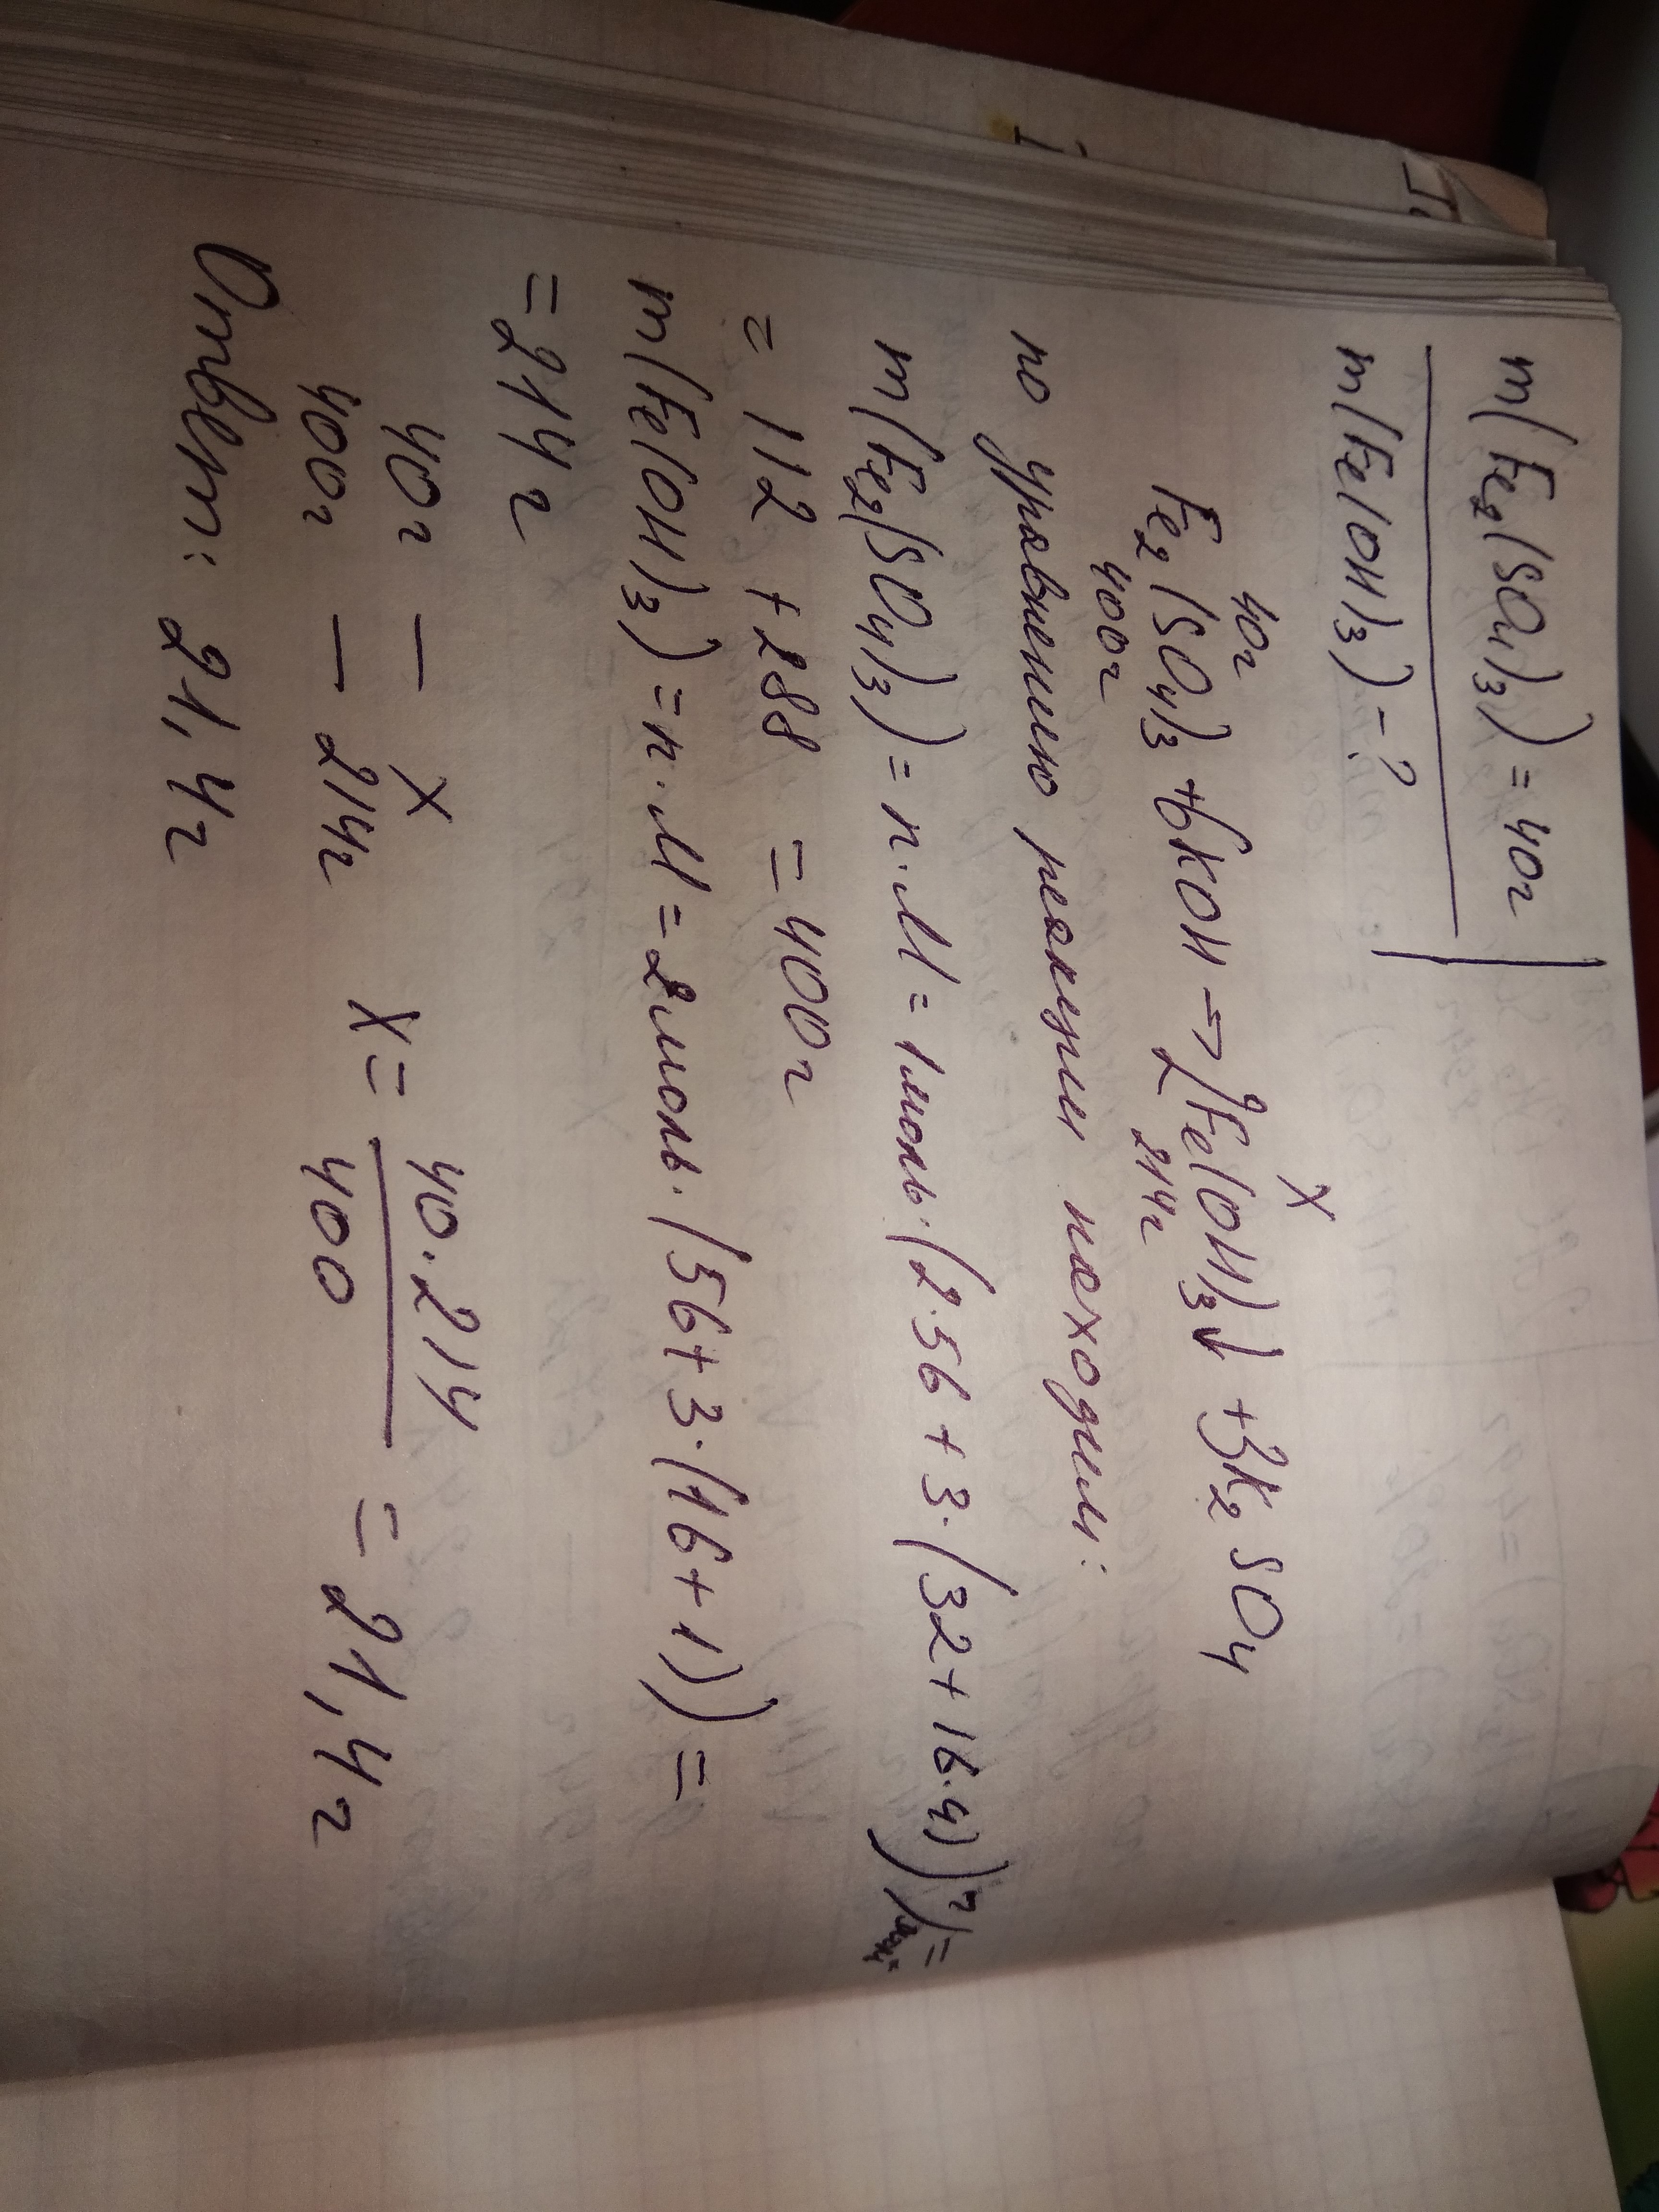 m(Fe₂(SO₄)₃) = 40г
m(Fe(OH)₃) - ?
40г X
Fe₂(SO₄)₃ + 6KOH → 2Fe(OH)₃↓ + 3K₂SO₄
400г 214г
по уравнению реакции находим:
m(Fe₂(SO₄)₃) = n·M = 1моль·(2·56 + 3·(32 + 16·4)) г/моль =
= 112 + 288 = 400г
m(Fe(OH)₃) = n·M = 2моль·(56 + 3·(16 + 1)) =
= 214г
40г — X
400г — 214г X = 40·214/400 = 21,4г
Ответ: 21,4г